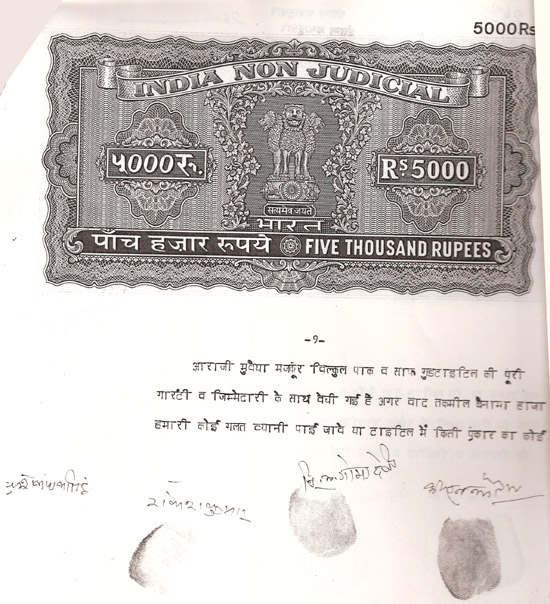 5000Rs
INDIA NON JUDICIAL
५000रु.
Rs 5000
सत्यमेव जयते
भारत
पाँच हजार रुपये FIVE THOUSAND RUPEES
-9-
आराजी मुवैया मजकूर विल्कुल पाक व साफ गुडटाइटिल की पूरी
गारन्टी व जिम्मेदारी के साथ वेची गई है अगर वाद तकमील वैनामा हाजा
हमारी कोई गलत व्यानी पाई जावे या टाइटिल में किसी प्रकार का कोई
राकेशकुमार
नि.अ.गोमा देवी